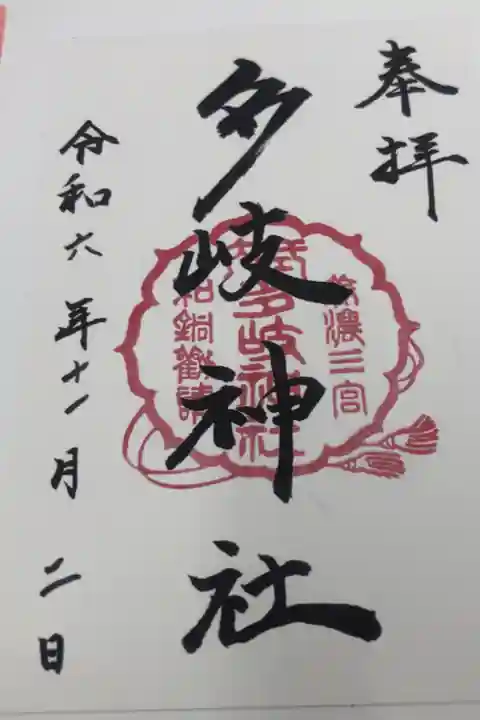 奉拝
多岐神社
令和六年十一月二日
美濃三宮
多岐神社
和銅勧請